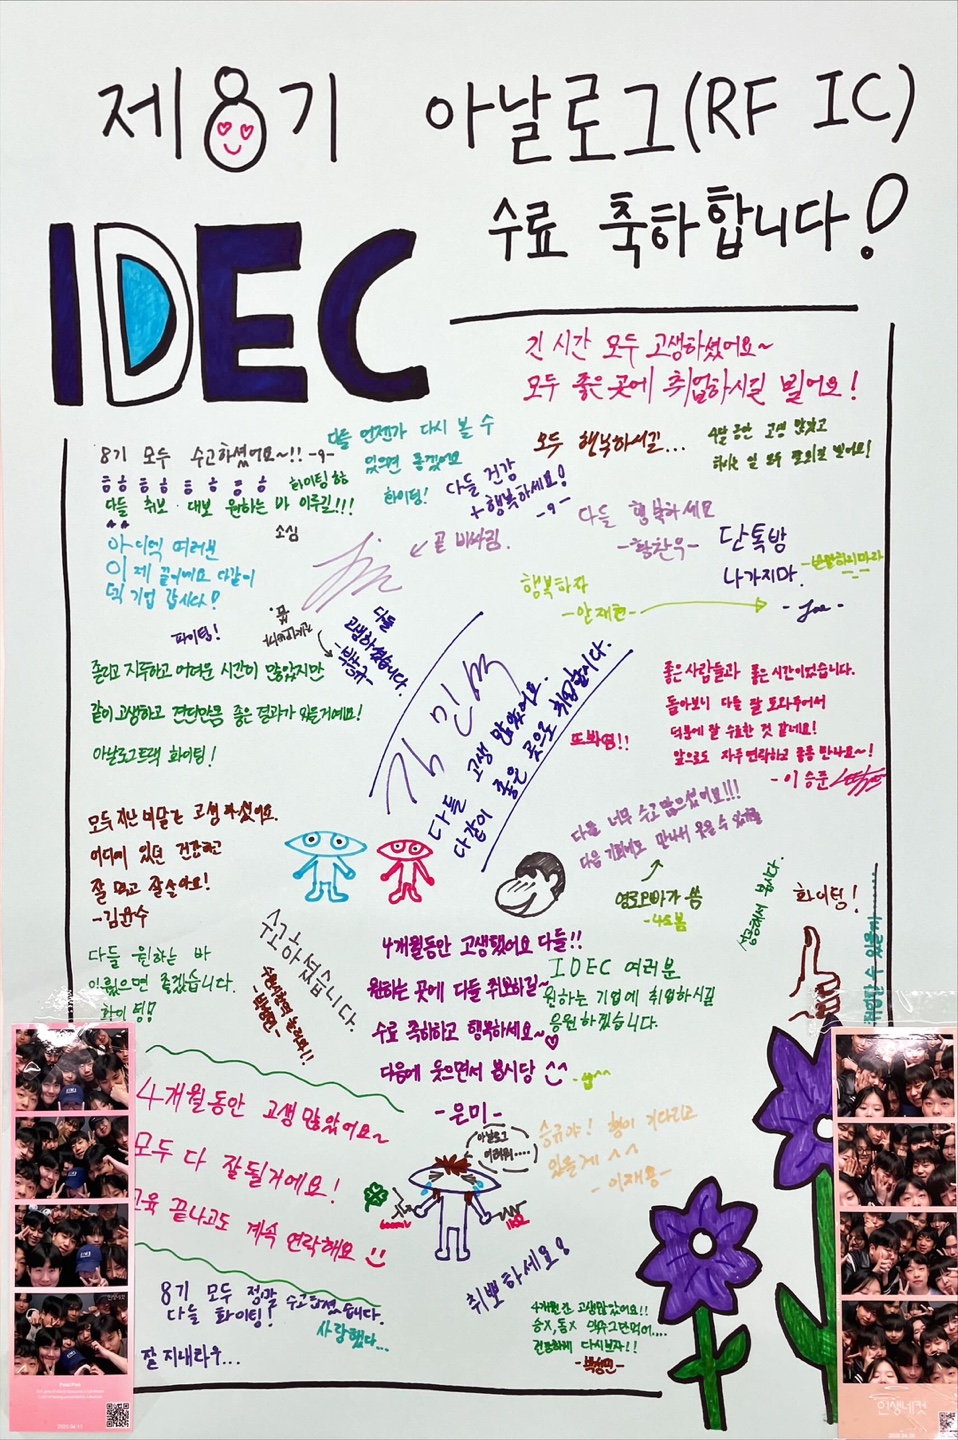 제8기 아날로그(RF IC)
수료 축하합니다!
IDEC
긴 시간 모두 고생하셨어요~
모두 좋은 곳에 취업하시길 빌어요!
8기 모두 수고하셨어요~!!
화이팅
다들 취보·대보 원하는 바 이루길!!!
다들 언젠가 다시 볼 수
있으면 좋겠어요
화이팅!
모두 행복하시길...
4달 동안 고생 많았고
하시는 일 모두 잘되길 빌어요!
다들 건강
+행복하세요!
다들 행복하세요
-황찬욱-
단톡방
나가지마.
-Joe-
여러분
이제 끝이에요 다같이
기업 갑시다!
소심
파이팅!
다들
고생하셨습니다.
행복하자
-안재현-
졸리고 지루하고 어려운 시간이 많았지만
같이 고생하고 견딘만큼 좋은 결과가 있을거예요!
아날로그트랙 화이팅!
김민석
다들 고생 많았어요.
다같이 좋은 곳으로 취업합시다.
또봐염!!
좋은 사람들과 좋은 시간이었습니다.
돌아보니 다들 잘 도와주어서
덕분에 잘 수료한 것 같네요!
앞으로도 자주 연락하고 종종 만나요~!
-이승준
모두 지난 네달간 고생하셨어요.
어디에 있던 건강하고
잘 먹고 잘살아요!
-김윤수
다들 너무 수고 많으셨어요!!!
다음 기회에도 만나서 웃을 수 있기를
다들 원하는 바
이뤘으면 좋겠습니다.
화이팅!!
수고하셨습니다.
4개월동안 고생했어요 다들!!
원하는 곳에 다들 취뽀하길~
수료 축하하고 행복하세요~♡
다음에 웃으면서 봅시당 ^^
-은미-
IDEC 여러분
원하는 기업에 취업하시길
응원하겠습니다.
성공해서 봅시다.
화이팅!
4개월동안 고생 많았어요~
모두 다 잘될거예요!
교육 끝나고도 계속 연락해요
아날로그
어려워....
승규야! 형이 기다리고
있을게 ^^
-이재용-
600mV
1kΩ
취뽀하세요!
8기 모두 정말 수고하셨습니다.
다들 화이팅!
사랑했다...
잘 지내라우...
4개월간 고생많았어요!!
건강하게 다시보자!!
인생네컷